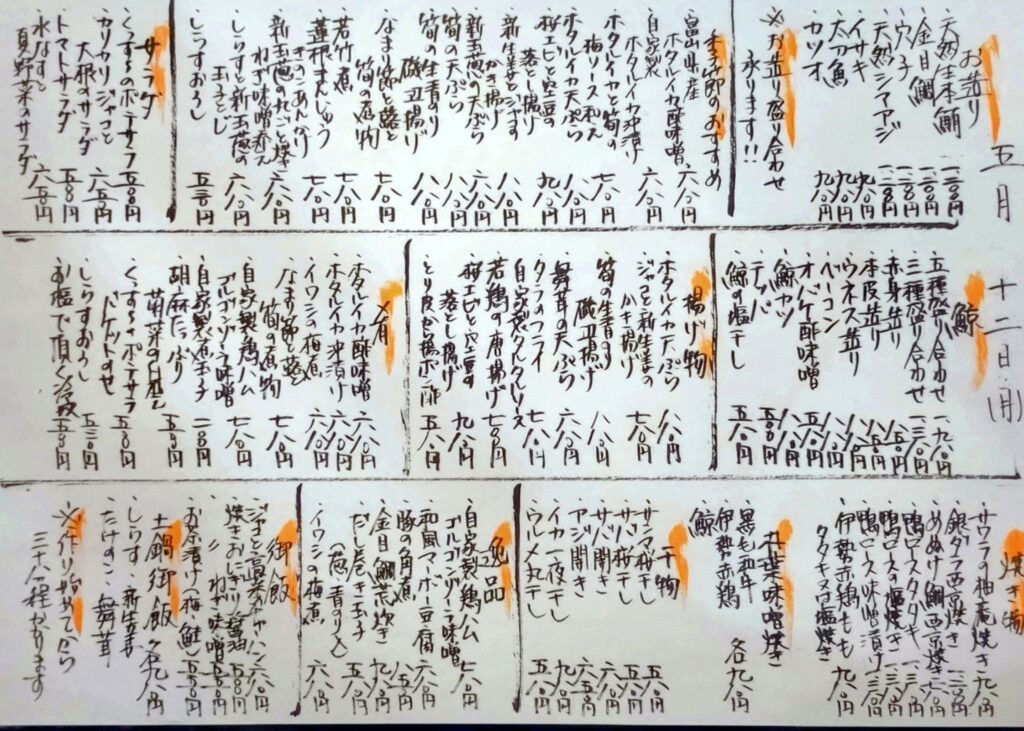 五月 十二日(月)
お造り
・天然生本鮪 一二〇〇円
・金目鯛 一二〇〇円
・穴子 一二〇〇円
・天然シマアジ 一二〇〇円
・イサキ 九八〇円
・太刀魚 九八〇円
・カツオ 九八〇円
※お造り盛り合わせ
承ります!!
季節のおすすめ
・富山県産
ホタルイカ酢味噌 六八〇円
・自家製
ホタルイカ沖漬け 六八〇円
・ホタルイカと筍の
梅ソース和え 七八〇円
・ホタルイカ天ぷら 八八〇円
・桜エビと空豆の
落とし揚げ 九八〇円
・新生姜とジャコの
かき揚げ 八八〇円
・新玉葱の天ぷら 六八〇円
・筍の天ぷら 八八〇円
・筍の生青のり
磯辺揚げ 八八〇円
・なまり節と蕗と
筍の煮物 七八〇円
・若竹煮 七八〇円
・蓮根まんじゅう
きのこあんかけ 七八〇円
・新玉葱の丸ごと焼き
ねぎ味噌添え 六八〇円
・しらすと新玉葱の
玉子とじ 六八〇円
・しらすおろし 五三〇円
サラダ
・くずきりのポテサラ 五五〇円
・カリカリジャコと
大根のサラダ 六五〇円
・トマトサラダ 五五〇円
・水なすと
夏野菜のサラダ 六五〇円
鯨
・五種盛り合わせ 一九八〇円
・三種盛り合わせ 一三八〇円
・赤身造り
・本皮造り
・ウネス造り
・ベーコン
・オバケ酢味噌
・鯨カツ
・鯨の塩干し 五八〇円
揚げ物
・ホタルイカ天ぷら 八八〇円
・ジャコと新生姜の
かき揚げ 七八〇円
・筍の生青のり
磯辺揚げ 八八〇円
・舞茸の天ぷら 六八〇円
・タラのフライ
自家製タルタルソース 七八〇円
・若鶏の唐揚げ 七五〇円
・桜エビと空豆の
落とし揚げ 九八〇円
・とり皮せん揚ポン酢 五八〇円
肴
・ホタルイカ酢味噌 六八〇円
・ホタルイカ沖漬け 六八〇円
・イワシの梅煮 六八〇円
・なまり節と蕗と
筍の煮物 七八〇円
・自家製鶏ハム
ゴルゴンゾーラ味噌 七八〇円
・自家製煮玉子
・胡麻だっぷり
・くずきりポテサラ
バケットのせ 五五〇円
・しらすおろし 五三〇円
・お塩で頂く冷奴 五五〇円
焼き物
・サワラの柚庵焼き 九八〇円
・銀ダラ西京焼き 一二〇〇円
・めぬけ鯛西京焼き
・鴨ロースタタキ 一三〇〇円
・鴨ロース塩焼き 一三〇〇円
・鴨ロース味噌漬け 一三〇〇円
・伊勢赤鶏もも
タタキ又は塩焼き 九八〇円
朴葉味噌焼き
・黒毛和牛
・伊勢赤鶏
・鯨
各九八〇円
干物
・サンマ桜干し 五八〇円
・サバ桜干し
・サバ開き
・アジ開き
・イカ一夜干し
・ウルメ丸干し 五八〇円
逸品
・自家製鶏ハム
ゴルゴンゾーラ味噌 七八〇円
・和風マーボー豆腐 六八〇円
・豚の角煮
・金目鯛アラ炊き 九八〇円
・だし巻き玉子
(葱・青のり入) 五八〇円
・イワシの梅煮 六八〇円
御飯
・ジャコと高菜チャーハン 六八〇円
・焼きおにぎり(醤油 五五〇円
〃 ねぎ味噌 五五〇円
・お茶漬け(梅・鮭) 五五〇円
土鍋御飯 各九八〇円
・しらす・新生姜
・たけのこ・舞茸
※ご注文を頂いてから
三十分程かかります